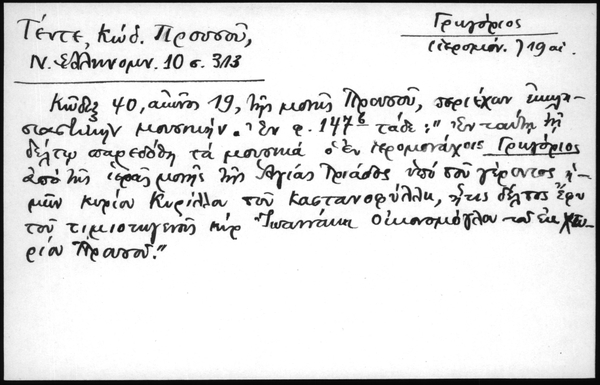 Τέντε, Κώδ. Προυσοῦ,
Ν. Ἑλληνομν. 10 σ. 313
Γρηγόριος
(ἱερομόν.) 19 αἰ.
Κῶδιξ 40, αἰῶνος 19, τῆς μονῆς Προυσοῦ, περιέχων ἐκκλη-
σιαστικὴν μουσικήν. Ἐν φ. 147β τάδε: "Ἐν ταύτῃ τῇ
δέλτῳ παρεδόθη τὰ μουσικά ὁ ἐν ἱερομονάχοις Γρηγόριος
ἀπὸ τῆς ἱερᾶς μονῆς τῆς Ἁγίας Τριάδος ὑπὸ τοῦ γέροντος ἡ-
μῶν κυρίου Κυρίλλου τοῦ Καστανοφύλλη, ἥτις δέλτος
τοῦ τιμιοτ κὺρ Ἰωαννάκη Οἰκονομόγλου τοῦ ἐκ χω-
ρίου